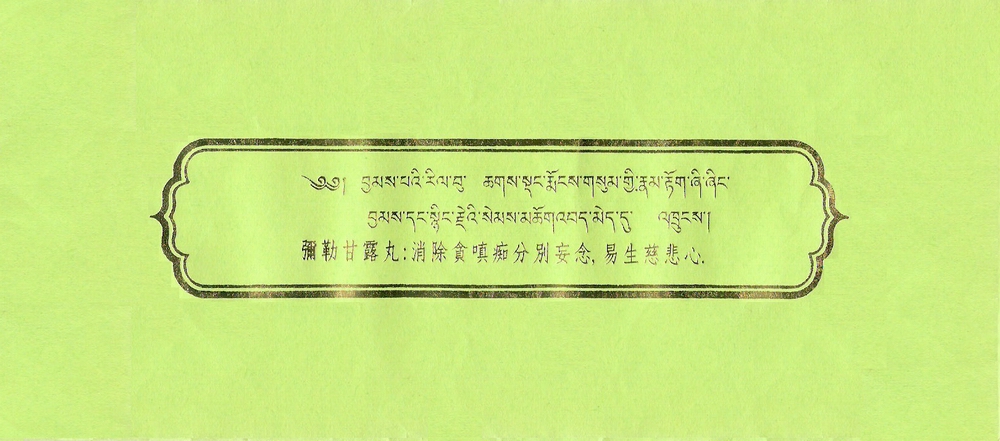 ༄༅། བྱམས་པའི་རིལ་བུ་ ཆགས་སྡང་རྨོངས་གསུམ་གྱི་རྣམ་རྟོག་ཞི་ཞིང་
བྱམས་དང་སྙིང་རྗེའི་སེམས་མཆོག་འབད་མེད་དུ་ འཁྲུངས།
彌勒甘露丸:消除貪嗔痴分別妄念, 易生慈悲心.